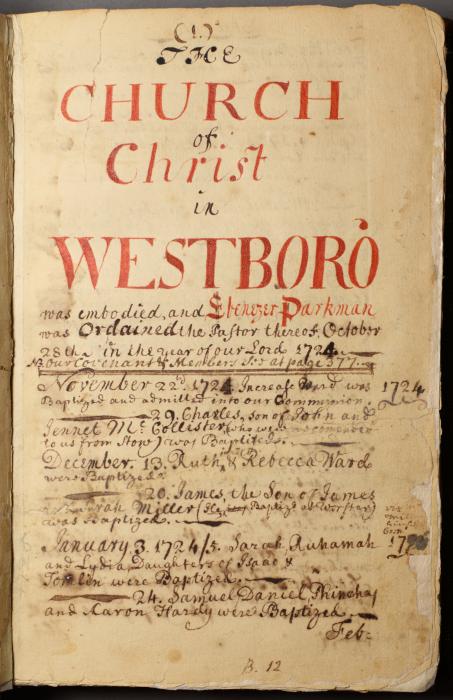 (1.)
THE
CHURCH
of
Christ
in
WESTBORO
was embodied, and Ebenezer Parkman
was Ordained the Pastor thereof, October
28th in the year of our Lord 1724.
NB our Covenant & Members See at page 377.
November 22d 1724 Increase Ward was 1724
Baptized and admitted into our Communion.
29. Charles, son of John and
Jennet Mc Collister, who were recommended
to us from Stow) was Baptized.
December. 13. Ruth, & Rebecca Ward
were Baptized.
20. James, the Son of James
Miller (Baptized at Worster)
was Baptized.
January 3. 1724/5. Sarah, Ruhamah
and Lydia, Daughters of Isaac
Tomlin were Baptized.
24. Samuel, Daniel, Phinehas
and Aaron Hardy were Baptized.
Feb:
B. 12